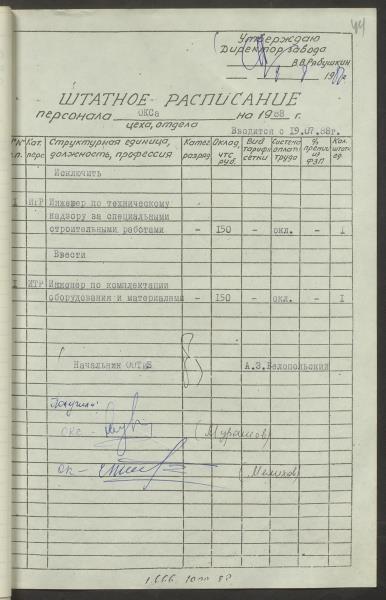 44
Утверждаю
Директор завода
В.В.Рябушкин
8 1988г.
ШТАТНОЕ РАСПИСАНИЕ
персонала ОКСа на 1988 г.
цеха, отдела
Вводится с 19.07.88г.
№№ п.п. Кат. перс. Структурная единица, должность, профессия Катег. разряд Оклад, чтс руб. Вид тарифн. сетки Система оплаты труда % премии из ФЗП Кол. штатн. ед.
Исключить
I ИТР Инженер по техническому
надзору за специальными
строительными работами – 150 – окл. – I
Ввести
I ИТР Инженер по комплектации
оборудования и материалами – 150 – окл. – I
Начальник ООТиЗ А.З.Белопольский
окс- (Мурашов)
ок- (Малахов)